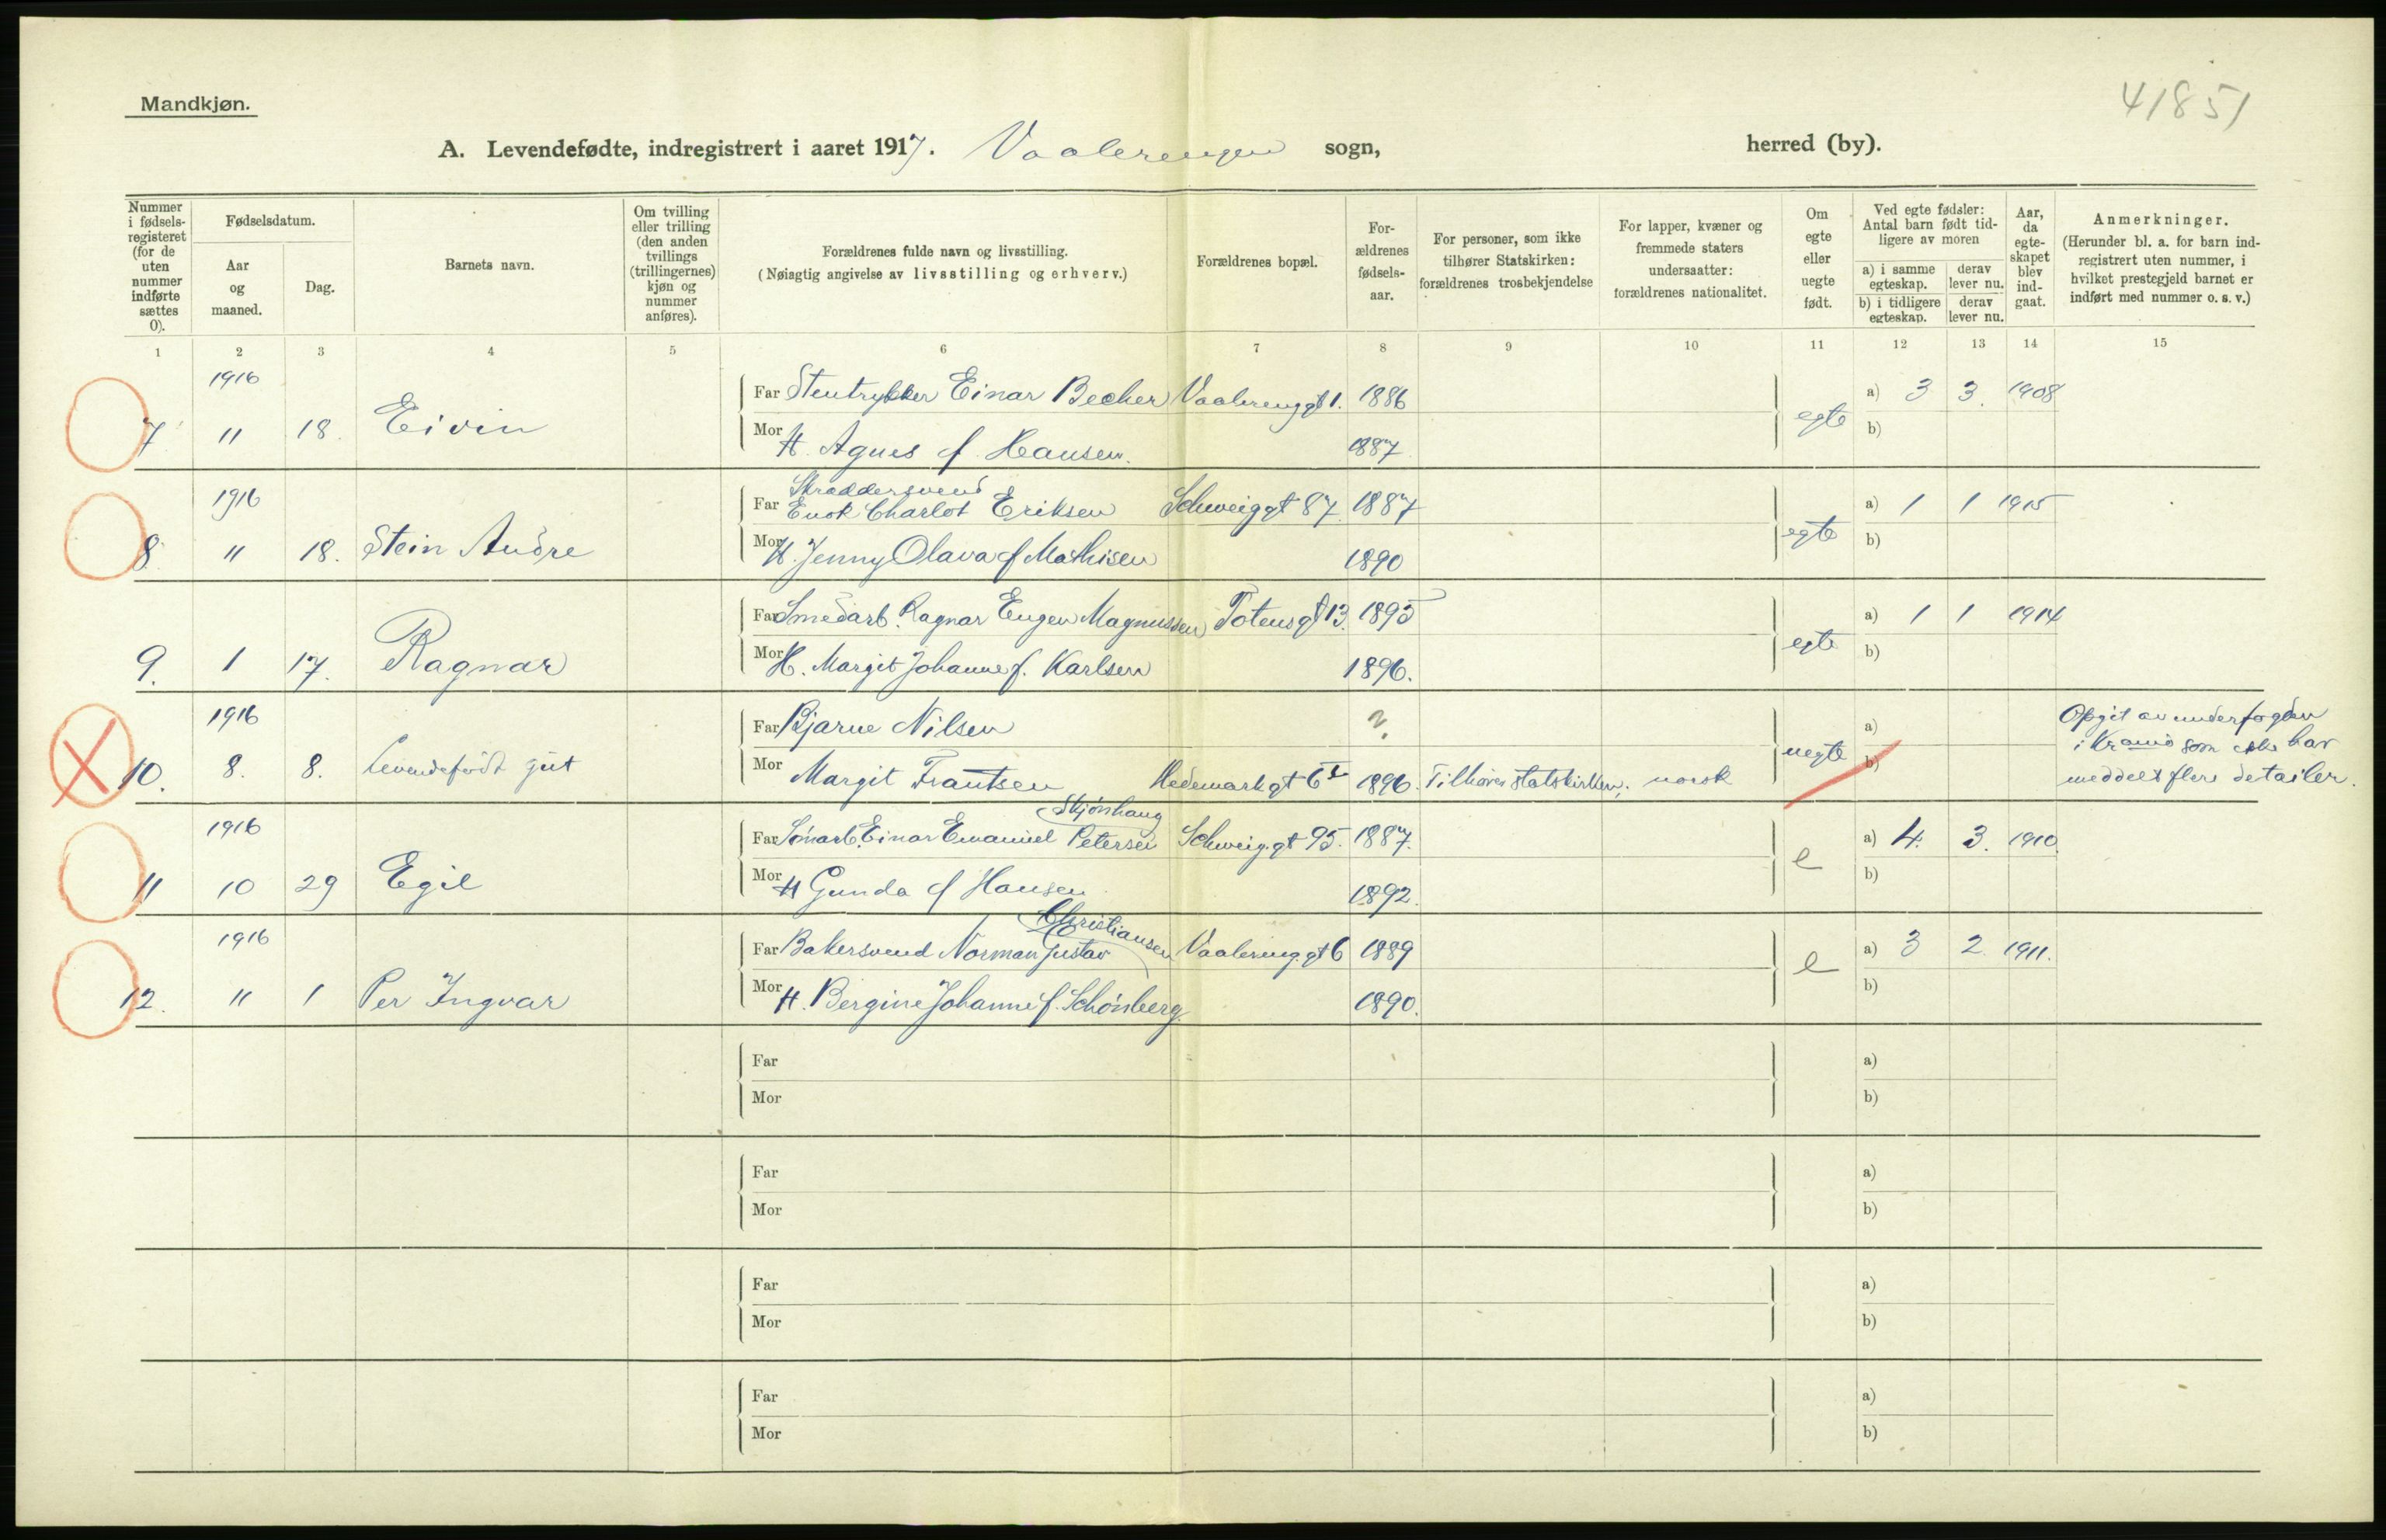 Mandkjøn.
41851
A. Levendefødte, indregistrert i aaret 1917. Vaalerengen sogn, herred (by).
Nummer i fødsels-registeret (for de uten nummer indførte sættes 0).
Fødselsdatum.
Aar og maaned.
Dag.
Barnets navn.
Om tvilling eller trilling (den anden tvillings (trillingernes) kjøn og nummer anføres).
Forældrenes fulde navn og livsstilling.
(Nøiagtig angivelse av livsstilling og erhverv.)
Forældrenes bopæl.
For-ældrenes fødsels-aar.
For personer, som ikke tilhører Statskirken: forældrenes trosbekjendelse
For lapper, kvæner og fremmede staters undersaatter: forældrenes nationalitet.
Om egte eller uegte født.
Ved egte fødsler: Antal barn født tid-ligere av moren
a) i samme egteskap. derav lever nu.
b) i tidligere egteskap. derav lever nu.
Aar, da egte-skapet blev ind-gaat.
Anmerkninger.
(Herunder bl. a. for barn ind-registrert uten nummer, i hvilket prestegjeld barnet er indført med nummer o. s. v.)
1 2 3 4 5 6 7 8 9 10 11 12 13 14 15
1916
Far Stentrykker Einar Becher Vaalerenggt 1. 1886 a) 3 3. 1908
7 11 18. Eivin egte b)
Mor H. Agnes f. Hansen. 1887
1916 Skraddersvend
Far Enok Charlot Eriksen Schweiggt 87. 1887 a) 1 1 1915
8. 11 18. Stein Andre egte b)
Mor H. Jenny Olava f Mathisen 1890
Far Smedarb. Ragnar Eugen Magnussen Totensgt 13. 1895 a) 1 1 1914
9. 1 17. Ragnar egte b)
Mor H. Margit Johanne f. Karlsen 1896.
1916
Far Bjarne Nilsen ? a) Opgit av underfogden
i Krania som ikke har
10. 8. 8. Levendefødt gut uegte b) meddelt flere detailer.
Mor Margit Frantsen Hedemarkgt 6 1896. Tilhører statskirken. norsk
1916 Skjønhaug
Far Smarb. Einar Emanuel Petersen Schweig.gt 95. 1887. a) 4. 3. 1910.
11 10 29 Egil e b)
Mor H Gunda f Hansen 1892.
1916 Christiansen
Far Bakersvend Norman Gustav Vaalereng.gt 6 1889 a) 3 2 1911.
12. 11 1 Per Ingvar e b)
Mor H. Bergine Johanne f. Schönberg. 1890.
Far a)
Mor b)
Far a)
Mor b)
Far a)
Mor b)
Far a)
Mor b)